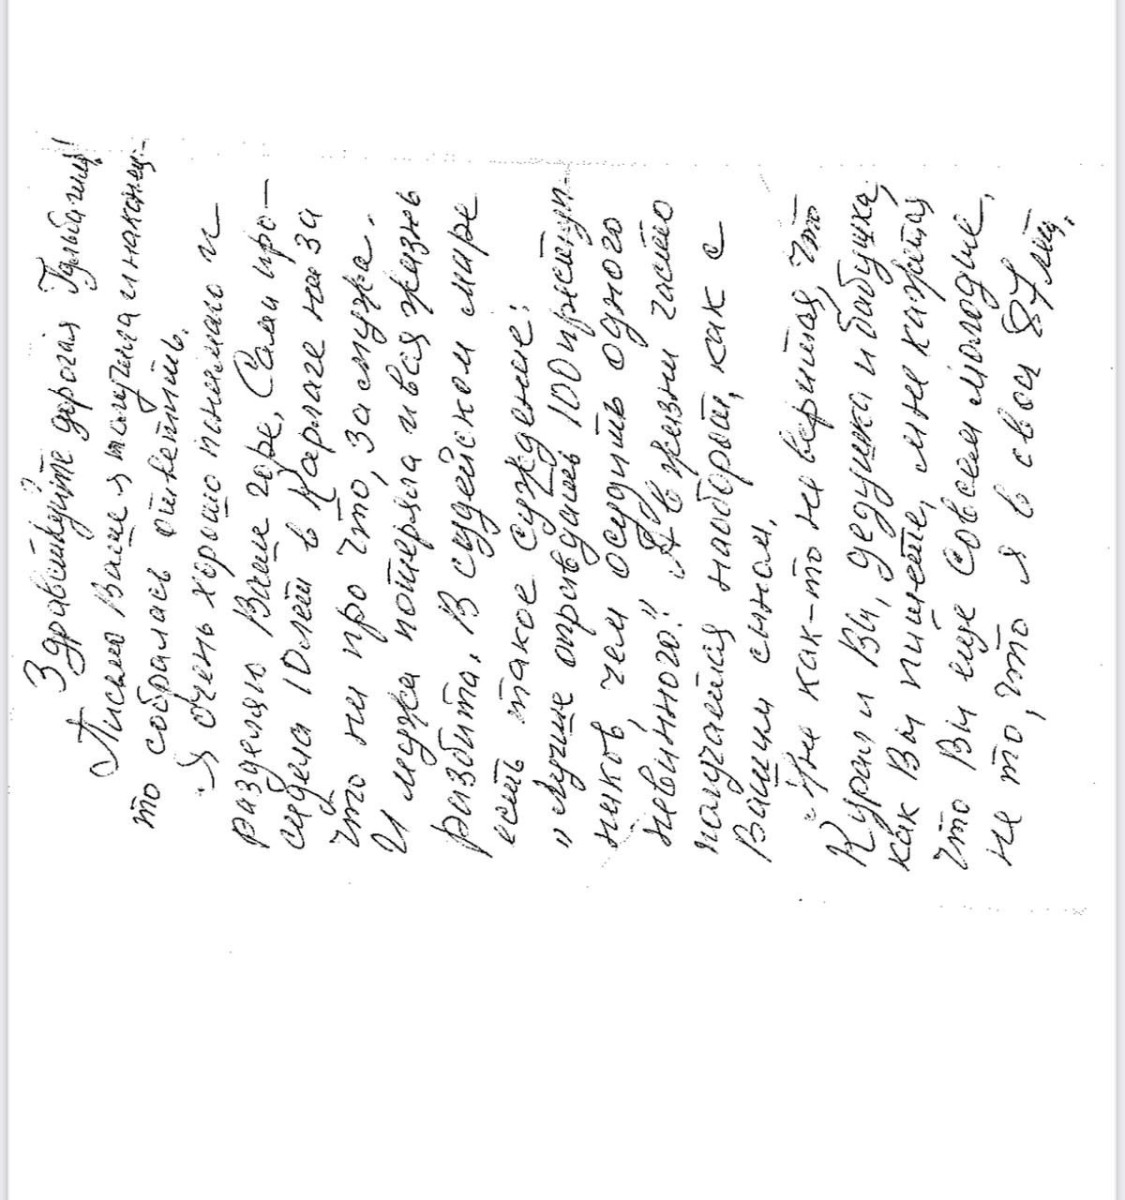 Здравствуйте дорогая Гульбагила!
Письма Ваши я получила и наконец-
то собралась ответить.
Я очень хорошо понимаю и
разделяю Ваше горе. Сама про-
сидела 10 лет в Карлаге ни за
что ни про что, за мужа.
И мужа потеряла и вся жизнь
разбита. В судейском мире
есть такое суждение:
„Лучше оправдать 100 преступ-
ников, чем осудить одного
невинного!" А в жизни часто
получается наоборот, как с
Вашим сыном.
Мне как-то не верится, что
Кураш и Вы, дедушка и бабушка,
как Вы пишете, мне кажется
что Вы ещё совсем молодые,
не то, что я в свои 87 лет.